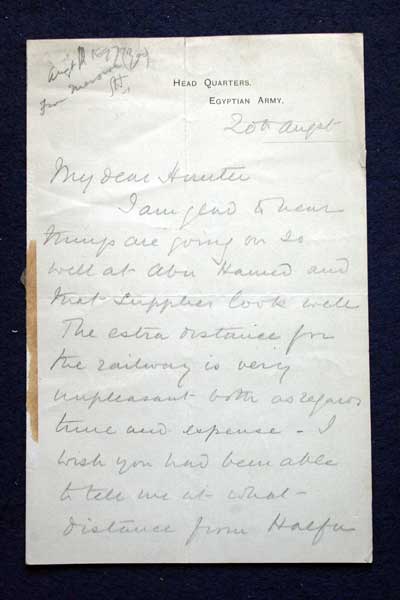 from Merowe
HEAD QUARTERS.
EGYPTIAN ARMY.
20th Augst
My dear Hunter
I am glad to hear
things are going on so
well at Abu Hamed and
that supplies look well
The extra distance for
the railway is very
unpleasant both as regards
time and expense - I
wish you had been able
to tell me at what
distance from Halfa